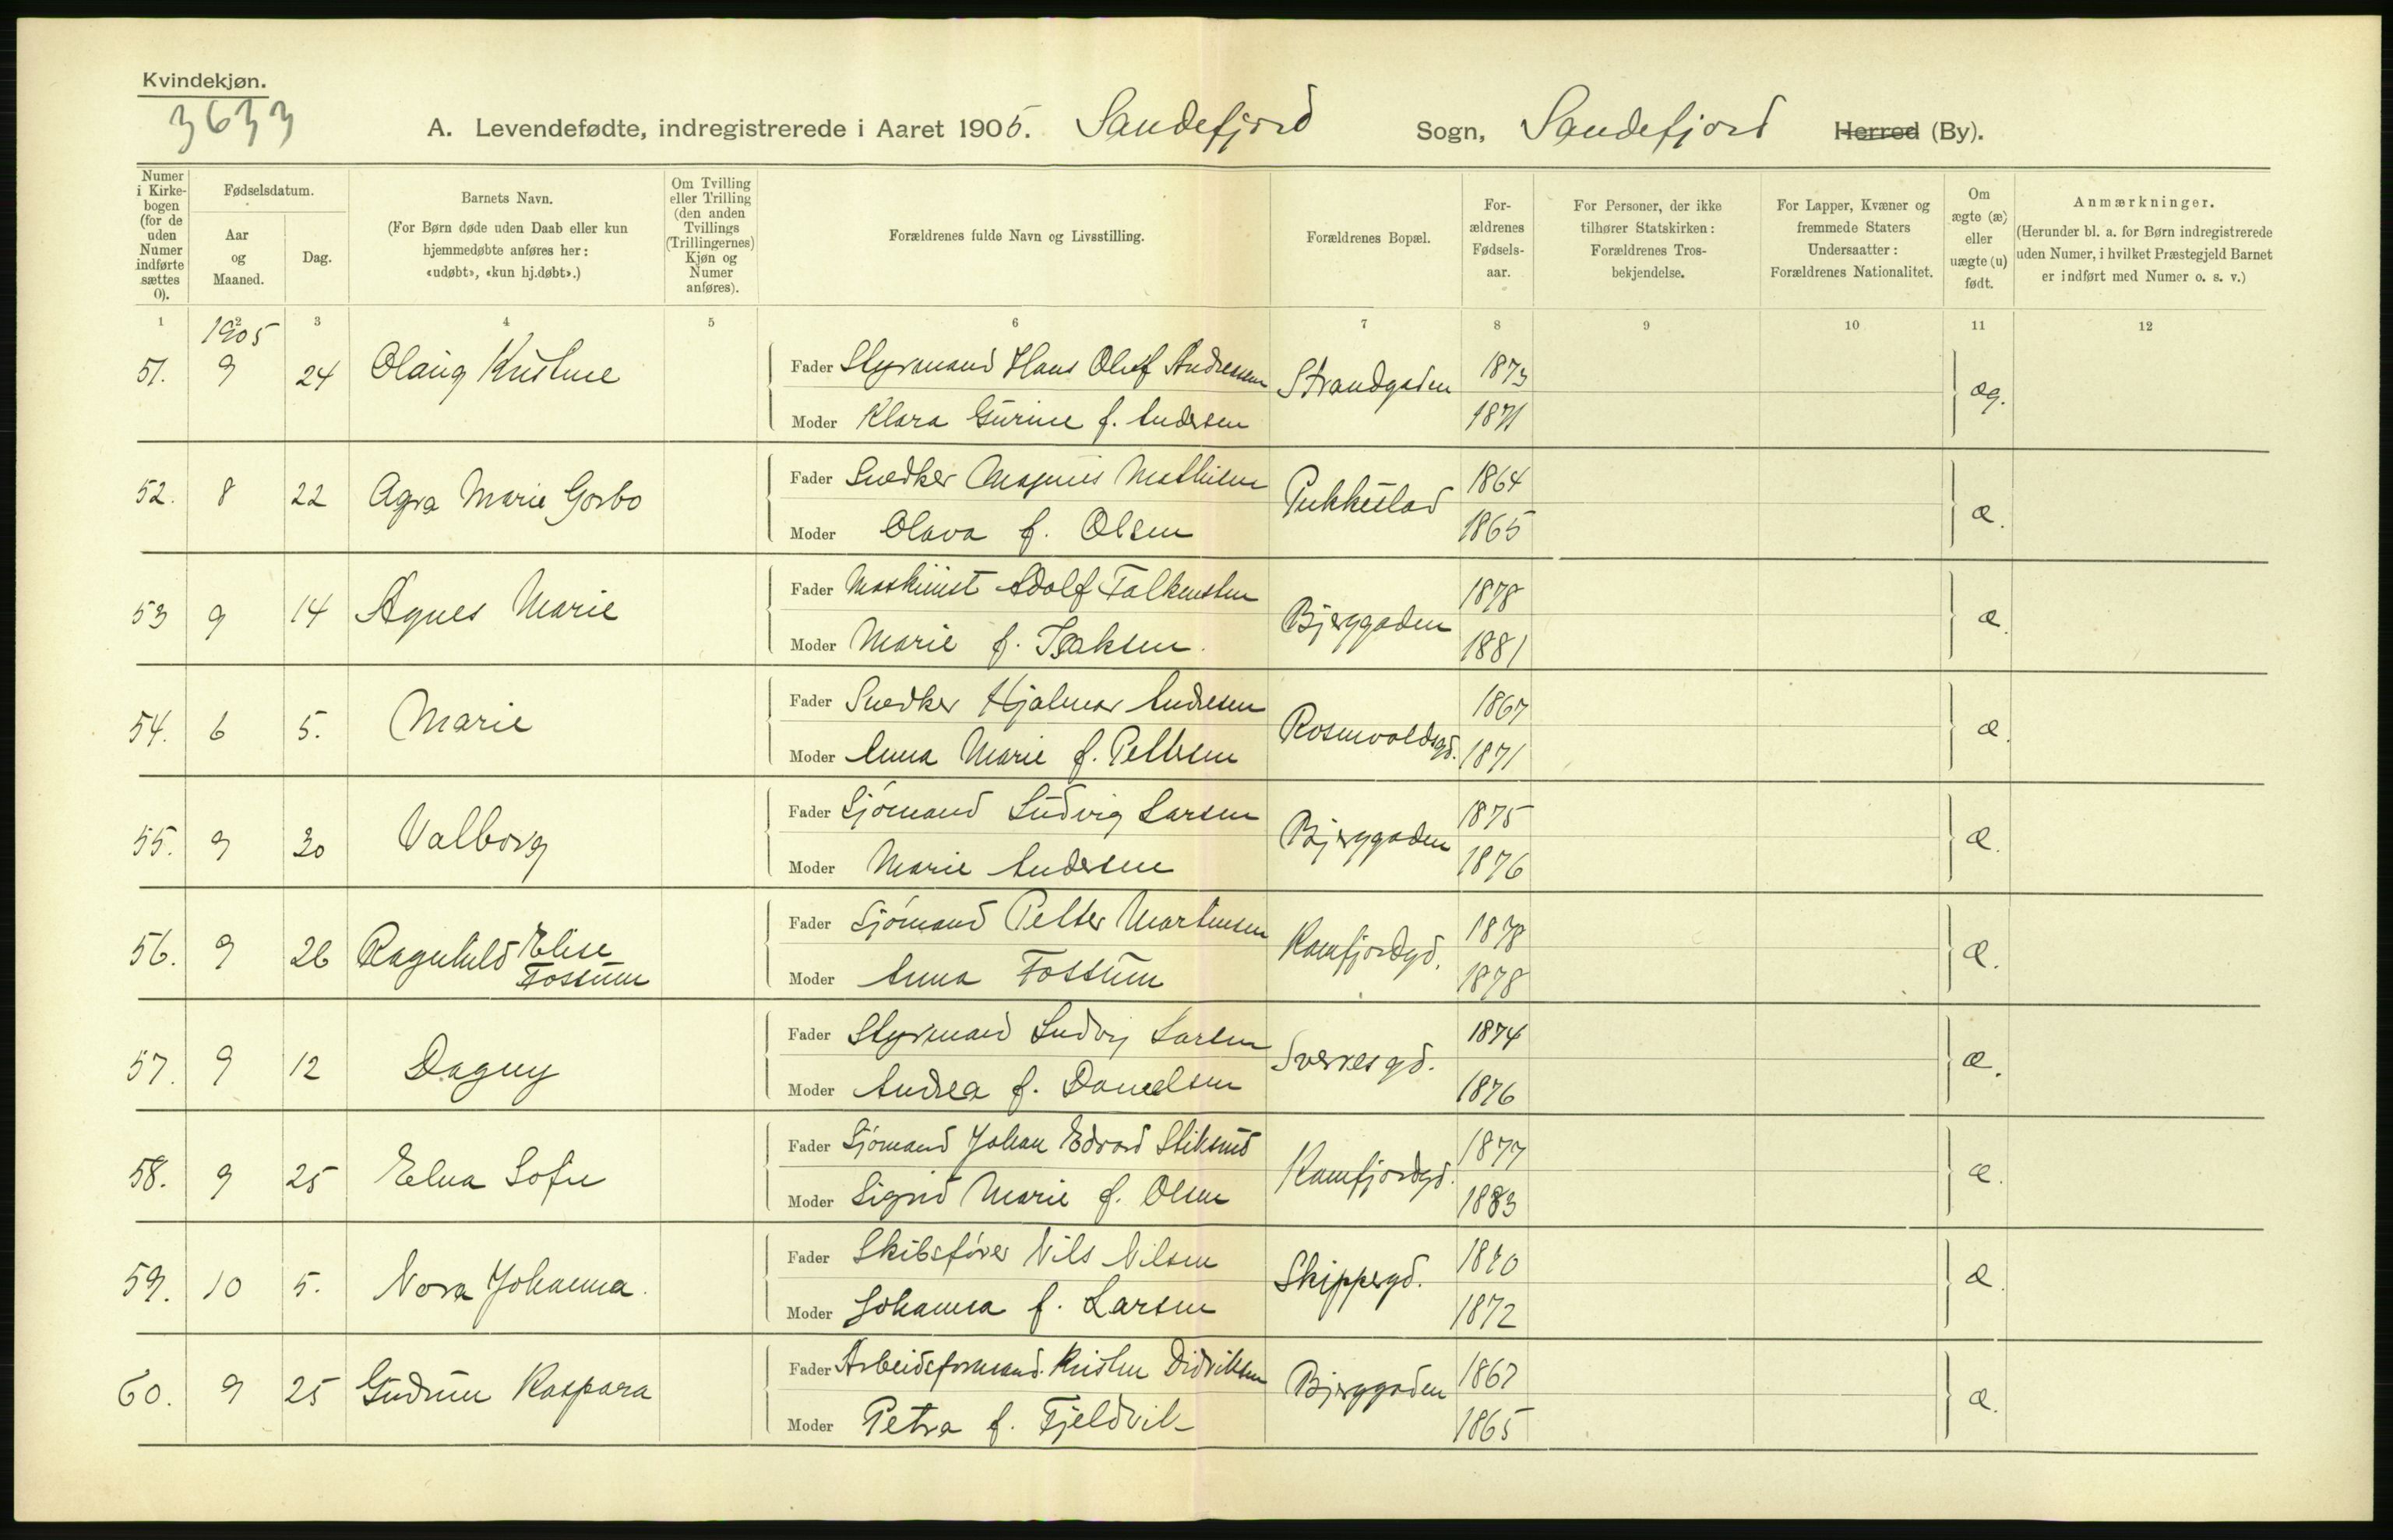 Kvindekjøn.
3633
A. Levendefødte, indregistrerede i Aaret 1905. Sandefjord Sogn, Sandefjord Herred (By).
Numer i Kirkebogen (for de uden Numer indførte sættes 0).
Fødselsdatum.
Aar og Maaned.
Dag.
Barnets Navn.
(For Børn døde uden Daab eller kun hjemmedøbte anføres her: «udøbt», «kun hj.døbt».)
Om Tvilling eller Trilling (den anden Tvillings (Trillingernes) Kjøn og Numer anføres).
Forældrenes fulde Navn og Livsstilling.
Forældrenes Bopæl.
Forældrenes Fødselsaar.
For Personer, der ikke tilhører Statskirken: Forældrenes Trosbekjendelse.
For Lapper, Kvæner og fremmede Staters Undersaatter: Forældrenes Nationalitet.
Om ægte (æ) eller uægte (u) født.
Anmærkninger.
(Herunder bl. a. for Børn indregistrerede uden Numer, i hvilket Præstegjeld Barnet er indført med Numer o. s. v.)
1 2 3 4 5 6 7 8 9 10 11 12
1905
51. 9 24 Olaug Kristine Fader Styrmand Hans Oluf Andresen Strandgaden 1873 æg.
Moder Klara Gurine f. Andersen 1871
52. 8 22 Agra Marie Gorbo Fader Snedker Magnus Mathisen Pukkestad 1864 æ.
Moder Olava f. Olsen 1865
53 9 14 Agnes Marie Fader Maskinist Adolf Falkensten Bjerggaden 1878 æ.
Moder Marie f. Isaksen. 1881
54. 6 5. Marie Fader Snedker Hjalmar Andresen Rosenvoldsgd. 1867 æ.
Moder Anna Marie f. Pettersen 1871
55. 9 30 Valborg Fader Sjömand Ludvig Larsen Bjerggaden 1875 æ.
Moder Marie Andersen 1876
56. 9 26 Ragnhild Elise Fossum Fader Sjömand Petter Martinsen Kamfjordgd. 1878 æ.
Moder Anna Fossum 1878
57. 9 12 Dagny Fader Styrmand Ludvig Larsen Sverresgd. 1874 æ.
Moder Andrea f. Danielsen 1876
58. 9 25 Elna Sofie Fader Sjömand Johan Edvard Stiksrud Kamfjordgd. 1877 æ.
Moder Sigrid Marie f. Olsen 1883
59. 10 5. Nora Johanna. Fader Skibsförer Nils Nilsen Skippergd. 1870 æ.
Moder Johanna f. Larsen 1872
60. 9 25 Gudrun Kaspara Fader Arbeidsformand. Kristen Didriksen Bjerggaden 1867 æ.
Moder Petra f. Fjeldvik 1865